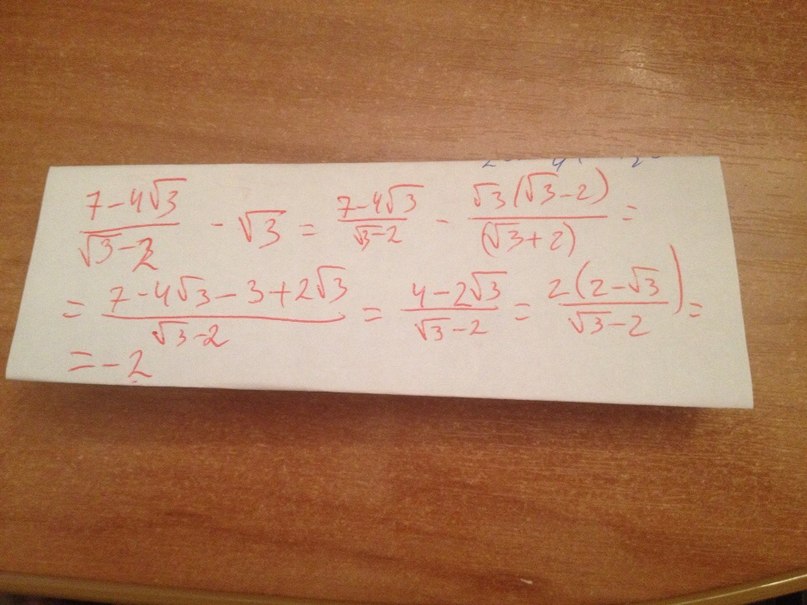 (7-4√3)/(√3-2) - √3 = (7-4√3)/(√3-2) - (√3(√3-2))/((√3+2)) =
= (7-4√3-3+2√3)/(√3-2) = (4-2√3)/(√3-2) = (2(2-√3))/(√3-2) =
= -2